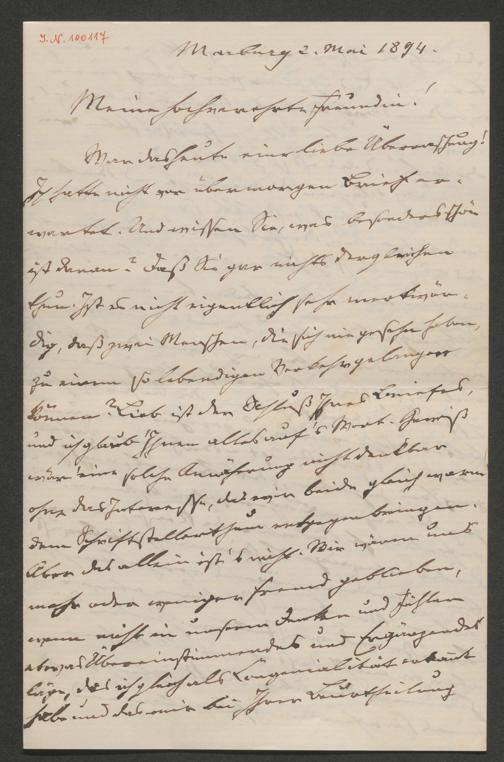 J. N. 100117
Marburg 2. Mai 1894.
Meine hochverehrte Freundin!
War das heute eine liebe Überraschung!
Ich hatte nicht vor übermorgen Brief er-
wartet. Und wissen Sie, was besonders schön
ist daran? Daß Sie gar nichts dergleichen
thun. Ist es nicht eigentlich sehr merkwür-
dig, daß zwei Menschen, die sich nie gesehn haben,
zu einem so lebendigen Verkehr gelangen
können? Lieb ist der Schluß Ihres Briefes,
und ich glaub' Ihnen alles auf's Wort. Gewiß
wär' eine solche Annäherung nicht denkbar
ohne das Interesse, das wir beide gleich warm
dem Schriftstellerthum entgegenbringen.
Aber das allein ist's nicht. Wir wären uns
mehr oder weniger fremd geblieben,
wenn nicht in unserm Denken und Fühlen
etwas Übereinstimmendes und Ergänzendes
läge, das ich gleich als Congenialität erkannt
habe und das mir bei Ihrer Beurtheilung